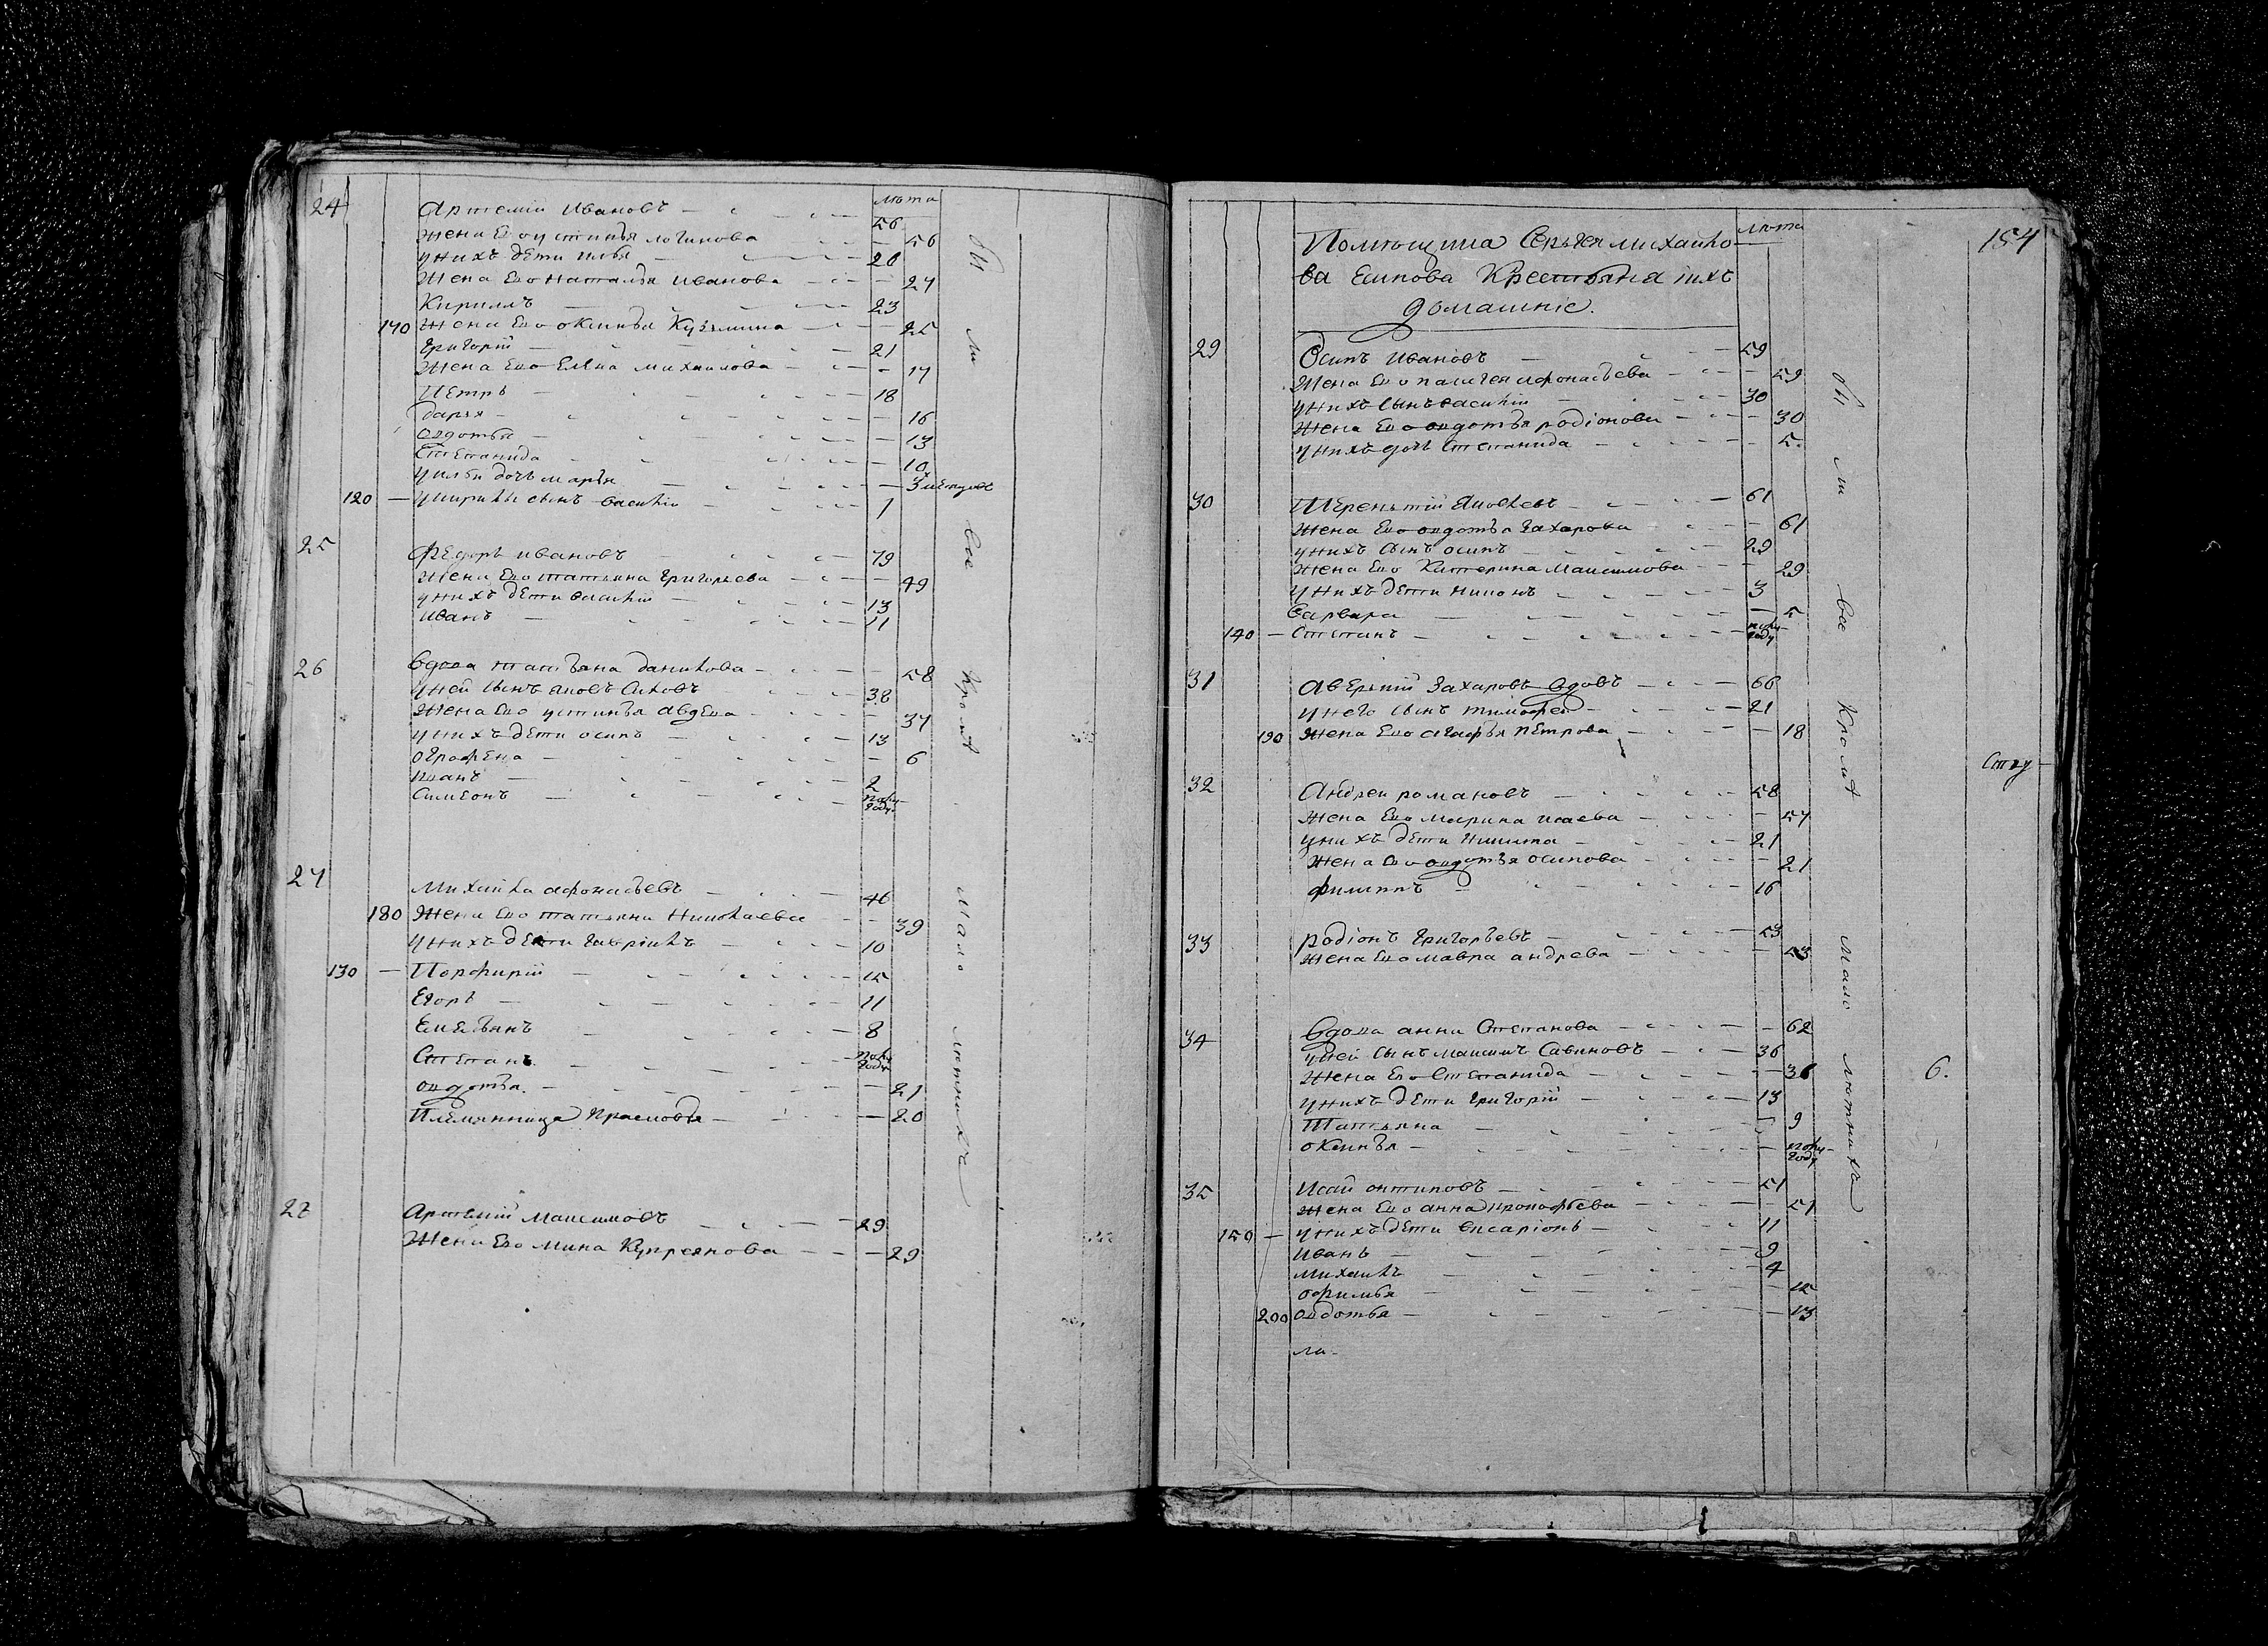 лѣта
24 Артемій Ивановъ 56
жена ево устинья логинова 56
у нихъ дети илья 26
жена ево наталья Иванова 27
Кирилъ 23
170 жена ево оксинья Кузьмина 25
григорій 21
жена ево Елена михаилова 17
Петръ 18
дарья 16
овдотья 13
Степанида 10
у ильи дочь марья 3 месяцовъ
120 у кирилы сынъ василій 1
25 Федоръ ивановъ 79
жена ево татьяна григорьева 49
у нихъ дети василій 13
иванъ 11
26 вдова татьяна данилова 58
у ней сынъ яковъ 38
жена ево устинья авдеева 37
у нихъ дети осипъ 13
ографена 6
иванъ 2
Симеонъ полу году
27 Михайла афонасьевъ 46
180 жена ево татьяна Николаева 39
у нихъ дети гаврилъ 10
130 Порфирій 15
Егоръ 11
Емельянъ 8
Степанъ полу году
овдотья 21
Племянница Прасковья 20
28 Артемій Максимовъ 29
жена ево мина Купреянова 29
бы ли все кроме мало летнихъ
154
лѣта
Помѣщика Сергея михаило
ва Есипова Крестьяня ихъ
домашніе.
29 Осипъ ивановъ 59
жена ево палагея афонасьева 59
у нихъ сынъ василій 30
жена ево овдотья родіонова 30
у нихъ дочь степанида 5.
30 Терентій Яковлевъ 61
жена ево овдотья Захарова 61
у нихъ сынъ осипъ 29
жена ево Катерина Максимова 29
у нихъ дети никонъ 3
варвара 5
140 Степанъ полу году
31 Аверьян Захаровъ вдовъ 66
у него сынъ тимофей 21
190 жена ево агафья петрова 18
32 Андреи романовъ 58
жена ево марина исаева 57
у нихъ дети никита 21
жена ево овдотья осипова 21
филиппъ 16
33 родіонъ григорьевъ 53
жена ево мавра андреева 53
34 вдова анна Степанова 62
у ней сынъ максимъ Савиновъ 36
жена ево Степанида 36
у нихъ дети григорій 13
Татьяна 9
оксинья полу году
35 Исай онтиповъ 51
жена ево анна прокофьева 51
150 у нихъ дети висаріонъ 11
иванъ 9
михаилъ 4
офимья 15
200 овдотья 13
ли-
бы ли все Кроме мало летнихъ
6.